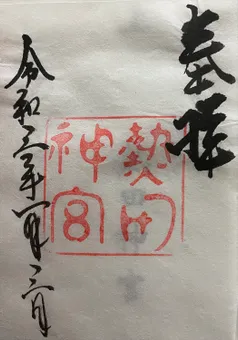 奉拝
熱田
神宮
令和三年一月三日